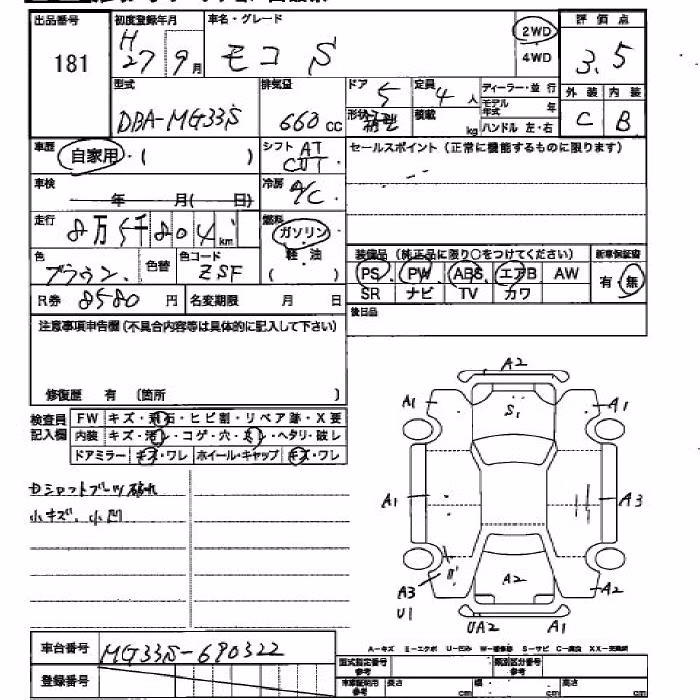 出品番号 初度登録年月 車名・グレード 評価点
181 H27 9月 モコ S 2WD 4WD 3.5
外装 内装
C B
型式 排気量 ドア 定員 ディーラー・並行
DBA-MG33S 660cc 5 4人 モデル年式 年
形状 積載 kg ハンドル 左・右
車歴 自家用・( ) シフト AT CVT セールスポイント(正常に機能するものに限ります)
車検 年 月( 日) 冷房 A/C
走行 8万5千804km 燃料 ガソリン
軽・油
( )
色 ブラウン 色替 色コード ZSF
装備品(純正品に限り○をつけてください) 新車保証書
PS PW ABS エアB AW 有・無
SR ナビ TV カワ
R券 8580円 名変期限 月 日
後日品
注意事項申告欄(不具合内容等は具体的に記入して下さい)
修復歴 有 〔箇所 〕
検査員記入欄 FW キズ・飛石・ヒビ割・リペア跡・X要
内装 キズ・汚レ・コゲ・穴・ヌレ・ヘタリ・破レ
ドアミラー キズ・ワレ ホイール・キャップ キズ・ワレ
Dシフトブーツ破れ
小キズ、小凹
A2
A1 S1 A1
A1 A3
A3 A2 A2
U1 UA2 A1
A-キズ E-エクボ U-凹み W-補修跡 S-サビ C-腐食 XX-交換済
車台番号 MG33S-690322
登録番号
型式指定番号 参考 類別区分番号 参考
参考 長さ cm 幅 cm 高さ cm